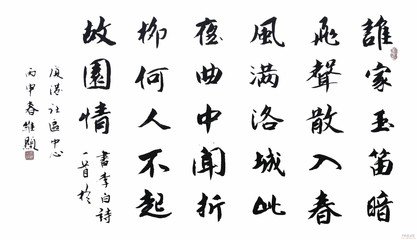 誰家玉笛暗
飛聲散入春
風滿洛城此
夜曲中聞折
柳何人不起
故園情
書李白詩
一首於
港社區中心
丙申春維